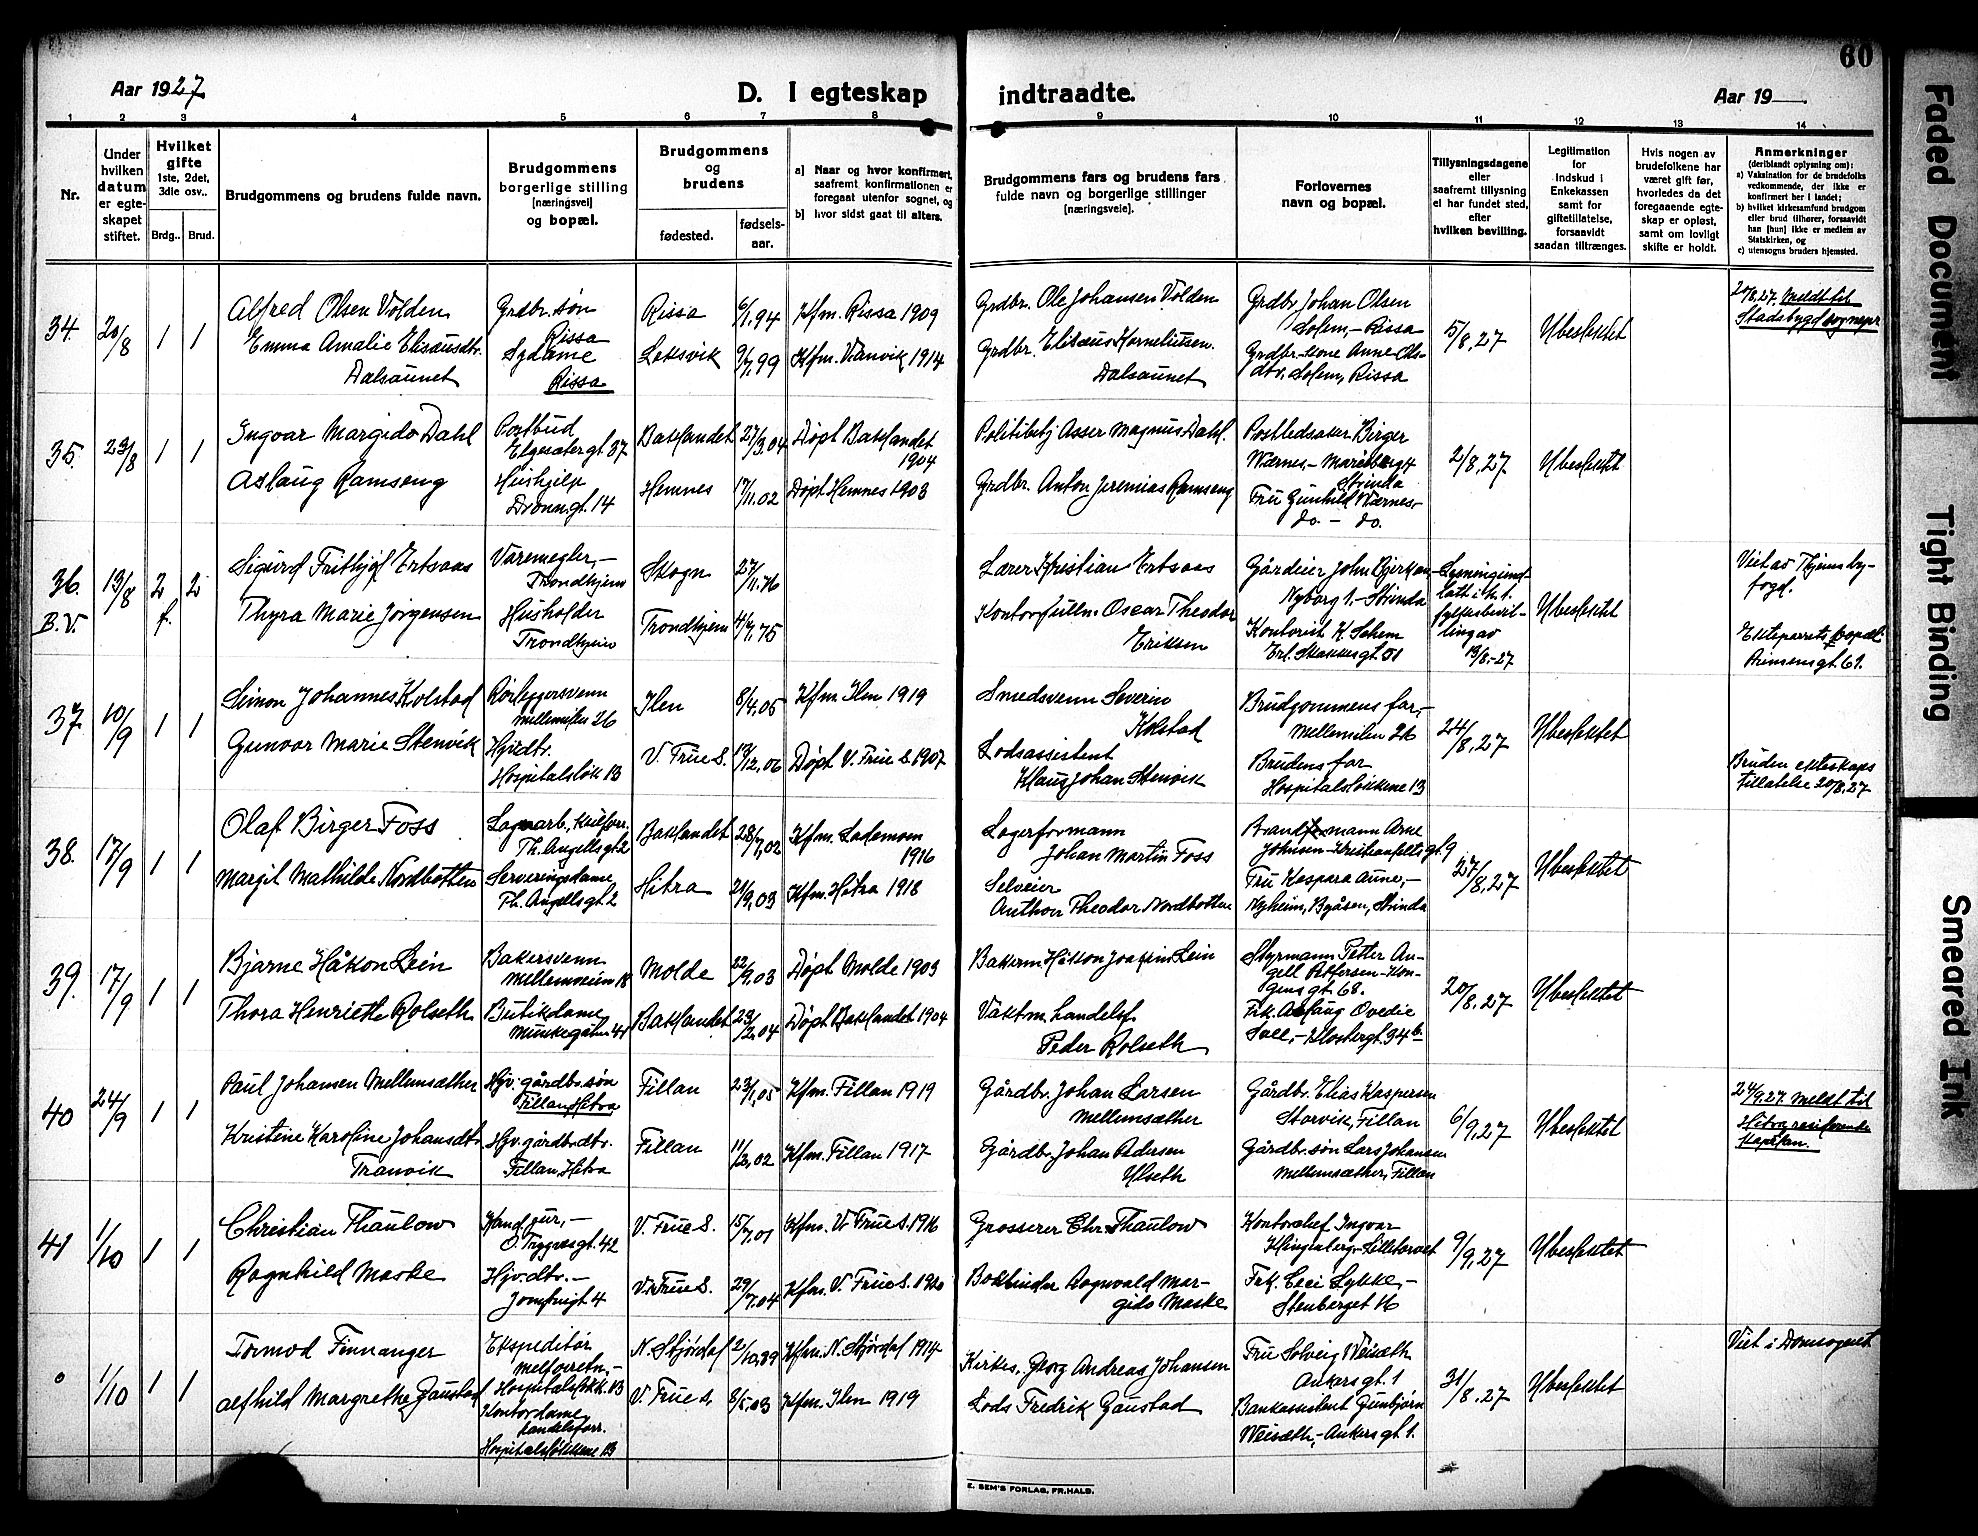 60
Aar 1927
D. I egteskap indtraadte.
Aar 19
1 2 3 4 5 6 7 8 9 10 11 12 13 14
Nr.
Under hvilken datum er egteskapet stiftet.
Hvilket gifte
1ste, 2det, 3die osv..
Brdg.. Brud.
Brudgommens og brudens fulde navn.
Brudgommens
borgerlige stilling
(næringsvei)
og bopæl.
Brudgommens
og
brudens
fødested.
fødselsaar.
a) Naar og hvor konfirmert,
saafremt konfirmationen er
foregaat utenfor sognet, og
b) hvor sidst gaat til alters.
Brudgommens fars og brudens fars
fulde navn og borgerlige stillinger
(næringsveie).
Forlovernes
navn og bopæl.
Tillysningsdagene
eller
saafremt tillysning
ei har fundet sted,
efter
hvilken bevilling.
Legitimation
for
indskud i
Enkekassen
samt for
giftetillatelse,
forsaavidt
saadan tiltrænges.
Hvis nogen av
brudefolkene har
været gift før,
hvorledes da det
foregaaende egte-
skap er opløst,
samt om lovligt
skifte er holdt.
Anmerkninger
(deriblandt oplysning om):
a) Vaksination for de brudefolks
vedkommende, der ikke er
konfirmert her i landet;
b) hvilket kirkesamfund brudgom
eller brud tilhører, forsaavidt
han [hun] ikke er medlem av
Statskirken, og
c) utensogns bruders hjemsted.
34. 20/8 1 1
Alfred Olsen Volden
Emma Amalie Elisæusdtr.
Dalsaunet
Grdbr. søn
Rissa
Sydame
Rissa
Rissa 6/1.94 Kfm. Rissa 1909
Leksvik 9/7.99 Kfm. Vanvik 1914
Grdbr. Ole Johansen Volden
Grdbr. Elisæus Korneliussen
Dalsaunet
Grdbr. Johan Olsen
Solem, - Rissa
Grdbr. kone Anne Ols-
dtr. Solem, Rissa
5/8.27 Ubeslektet
20/8.27. Meldt til
Stadsbygd sognepr
35. 23/8 1 1
Ingvar Margido Dahl
Aslaug Ramseng
Postbud
Elgesætergt. 37
Hushjelp
Dronn.gt. 14
Baklandet 27/3.04 Døpt Baklandet
1904
Hemnes 17/11.02 Døpt Hemnes 1903
Politibetj Asser Magnus Dahl.
Grdbr. Anton Jeremias Ramseng
Postledsaker Birger
Wærnes, - Marienborg 4
Strinda
Fru Gunhild Wærnes,
do. - do.
2/8.27 Ubeslektet
36. B.V. 13/8 2 f. 2
Sigurd Fritjof Ertsaas
Thyra Marie Jørgensen
Varemegler, -
Trondhjem
Husholder
Trondhjem
Skogn 27/11.76
Trondhjem 4/7.75
Lærer Kristian Ertsaas
Kontorfullm. Oscar Theodor
Eriksen
Gårdeier John Bjerkan
Nyborg 1. - Strinda
Kontorist K. Schem
Erl. Skakkesgt. 51
Ubeslektet
13/8.-27
Viet av Thjems by-
fogd.
Ekteparrets bopæl:
Prinsensgt. 61.
37. 10/9 1 1
Simon Johannes Kolstad
Gunvor Marie Stenvik
Rørleggersvenn
Mellemilen 26
Hjv.dtr.
Hospitalsløk 13
Ilen 8/4.05 Kfm. Ilen 1919
V. Frue S. 13/12.06 Døpt V. Frue S. 1907
Smedsvenn Severin
Kolstad
Lodsassistent
Klaus Johan Stenvik
Brudgommens far, -
Mellemilen 26
Brudens far
Hospitalsløkkene 13
24/8.27 Ubeslektet
Bruden ekteskaps
tillatelse 20/8.27
38. 17/9 1 1
Olaf Birger Foss
Margit Mathilde Nordbotten
Th. Angellsgt. 2
Serveringsdame
Th. Angellsgt. 2
Baklandet 28/7.02 Kfm. Lademoen
1916
Hitra 21/9.03 Kfm. Hitra 1918
Lagerformann
Johan Martin Foss
Selveier
Anthon Theodor Nordbotten
Brandformann Arne
Johnsen - Kristianfeltsgt. 9
Fru Kaspara Aune, -
Nyheim, Byåsen, Strinda
27/8.27 Ubeslektet
39. 17/9 1 1
Bjarne Håkon Lein
Thora Henriette Rolseth
Bakersvenn
Mellemveien 18
Butikdame
Munkegaten 41
Molde 22/9.03 Døpt Molde 1903
Baklandet 23/2.04 Døpt Baklandet 1904
Bakerm. Håkon Joakim Lein
Vaktm. handelsf.
Peder Rolseth
Styrmann Petter An-
gell Pettersen - Kon-
gensgt. 68.
Frk. Aslaug Ovedie
Soee, - Klostergt. 34 b
20/8.27 Ubeslektet
40 24/9 1 1
Paul Johansen Mellemsæther
Kristine Karoline Johansdtr.
Tranvik
Hjv. gårdbr. søn
Fillan, Hitra
Hjv. gårdbr. dtr.
Fillan, Hitra
Fillan 23/1.05 Kfm. Fillan 1919
Fillan 11/2.02 Kfm. Fillan 1917
Gårdbr. Johan Larsen
Mellemsæther
Gårdbr. Johan Pedersen
Ulseth
Gårdbr. Elias Kaspersen
Storvik, Fillan
Gårdbr. søn Lars Johansen
Mellemsæther, Fillan
6/9.27 Ubeslektet
24/9.27 meldt til
Hitra residerende
kapellan.
41 1/10 1 1
Christian Thaulow
Ragnhild Maske
Kand. jur, -
O. Tryggvesgt. 42
Hjv. dtr. -
Jomfrugt 4
V. Frue S. 15/7.01 Kfm. V. Frue S. 1916
V. Frue S. 29/7.04 Kfm. V. Frue S. 1920
Grosserer Chr. Thaulow
Bokbinder Rognvald Mar-
gido Maske
Kontorchef Ingvar
Klingenberg - Lilletorvet
Frk. Ceci Lykke, -
Stenberget 16
9/9.27 Ubeslektet
0 1/10 1 1
Tormod Finnanger
Alfhild Margrethe Gaustad
Ekspeditør
Hospitalsløkk. 13
Kontordame
handelsforr.
Hospitalsløkkene 13
N. Stjørdal 2/10.99 Kfm. N. Stjørdal 1914
V. Frue S. 8/5.03 Kfm. Ilen 1919
Kirkes. Georg Andreas Johansen
Lods Fredrik Gaustad
Fru Solveig Weiseth
Ankersgt. 1
Bankassistent Gunbjørn
Weiseth, - Ankersgt. 1.
31/8.27 Ubeslektet
Viet i Domsognet
E. SEM'S FORLAG, FR.HALD.
Faded Document
Tight Binding
Smeared Ink